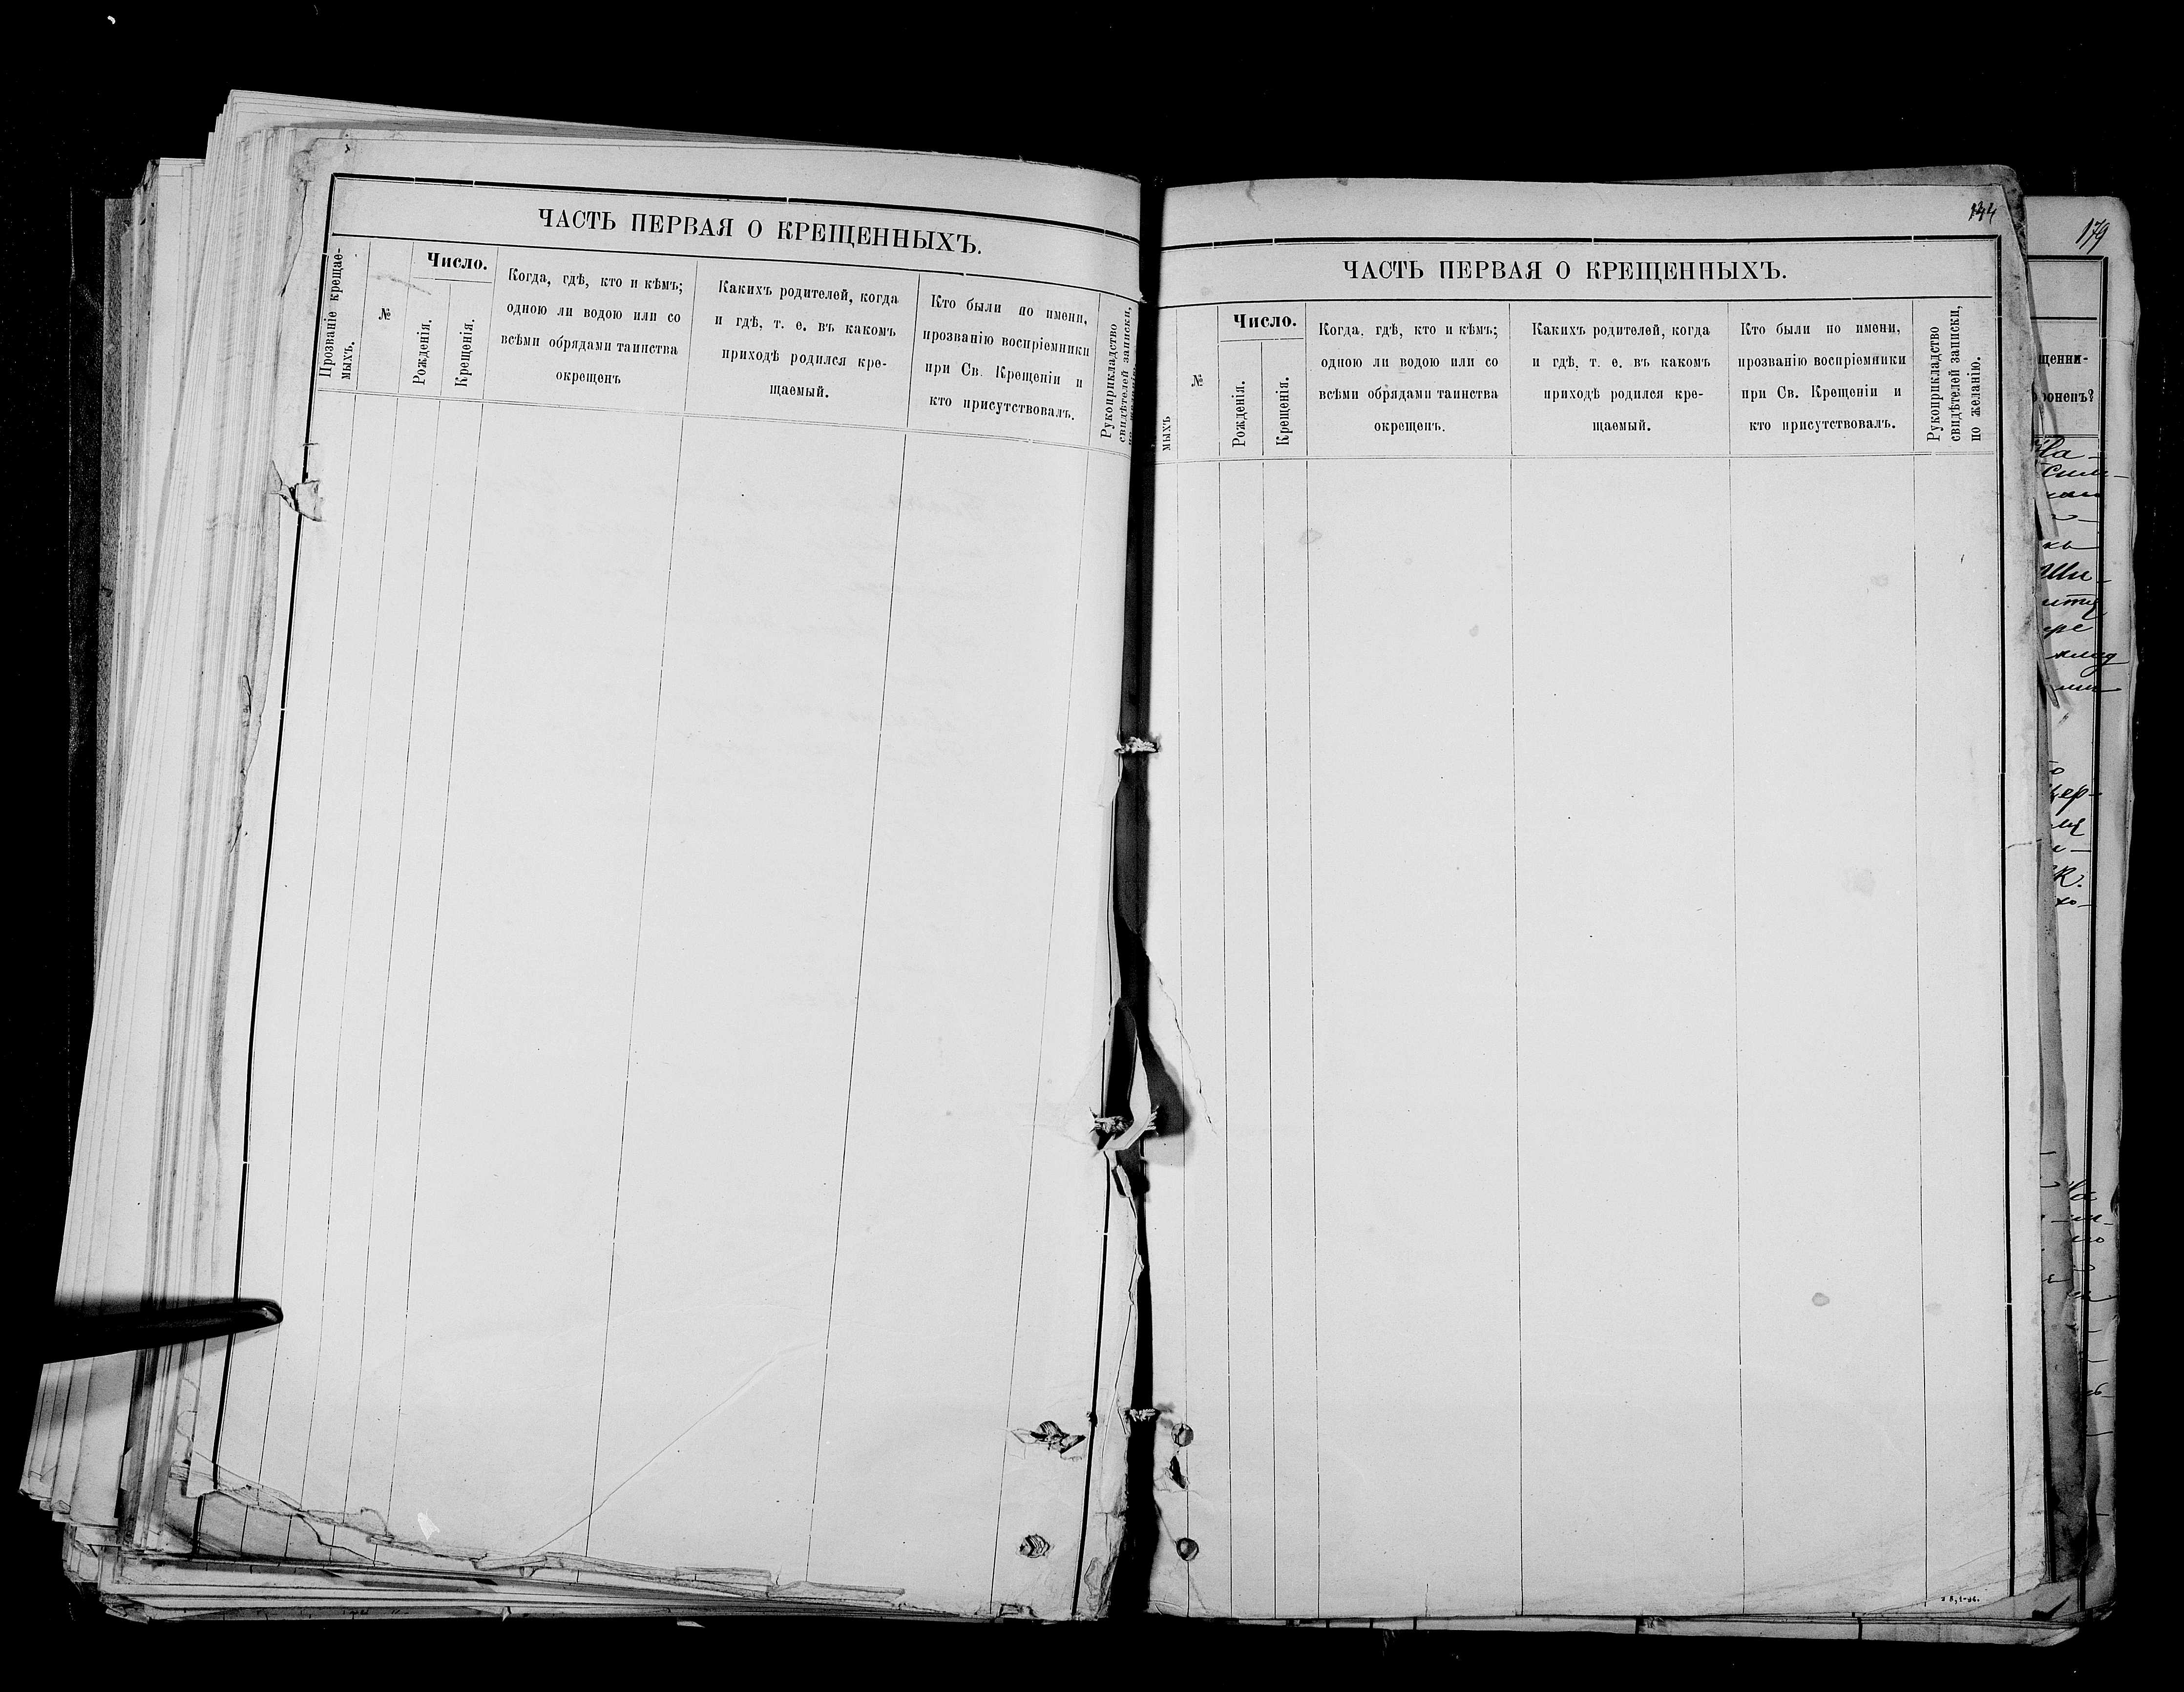 ЧАСТЬ ПЕРВАЯ О КРЕЩЕННЫХЪ.
Прозваніе крещае-
мыхъ.
№
Число.
Рожденія.
Крещенія.
Когда, гдѣ, кто и кѣмъ;
одною ли водою или со
всѣми обрядами таинства
окрещенъ
Какихъ родителей, когда
и гдѣ, т. е. въ какомъ
приходѣ родился кре-
щаемый.
Кто были по имени,
прозванію воспріемники
при Св. Крещеніи и
кто присутствовалъ.
Рукоприкладство
свидѣтелей записки,
144
ЧАСТЬ ПЕРВАЯ О КРЕЩЕННЫХЪ.
мыхъ
№
Число.
Рожденія.
Крещенія.
Когда, гдѣ, кто и кѣмъ;
одною ли водою или со
всѣми обрядами таинства
окрещенъ.
Какихъ родителей, когда
и гдѣ, т. е. въ какомъ
приходѣ родился кре-
щаемый.
Кто были по имени,
прозванію воспріемники
при Св. Крещеніи и
кто присутствовалъ.
Рукоприкладство
свидѣтелей записки,
по желанію.
179
щенни-
роненъ?